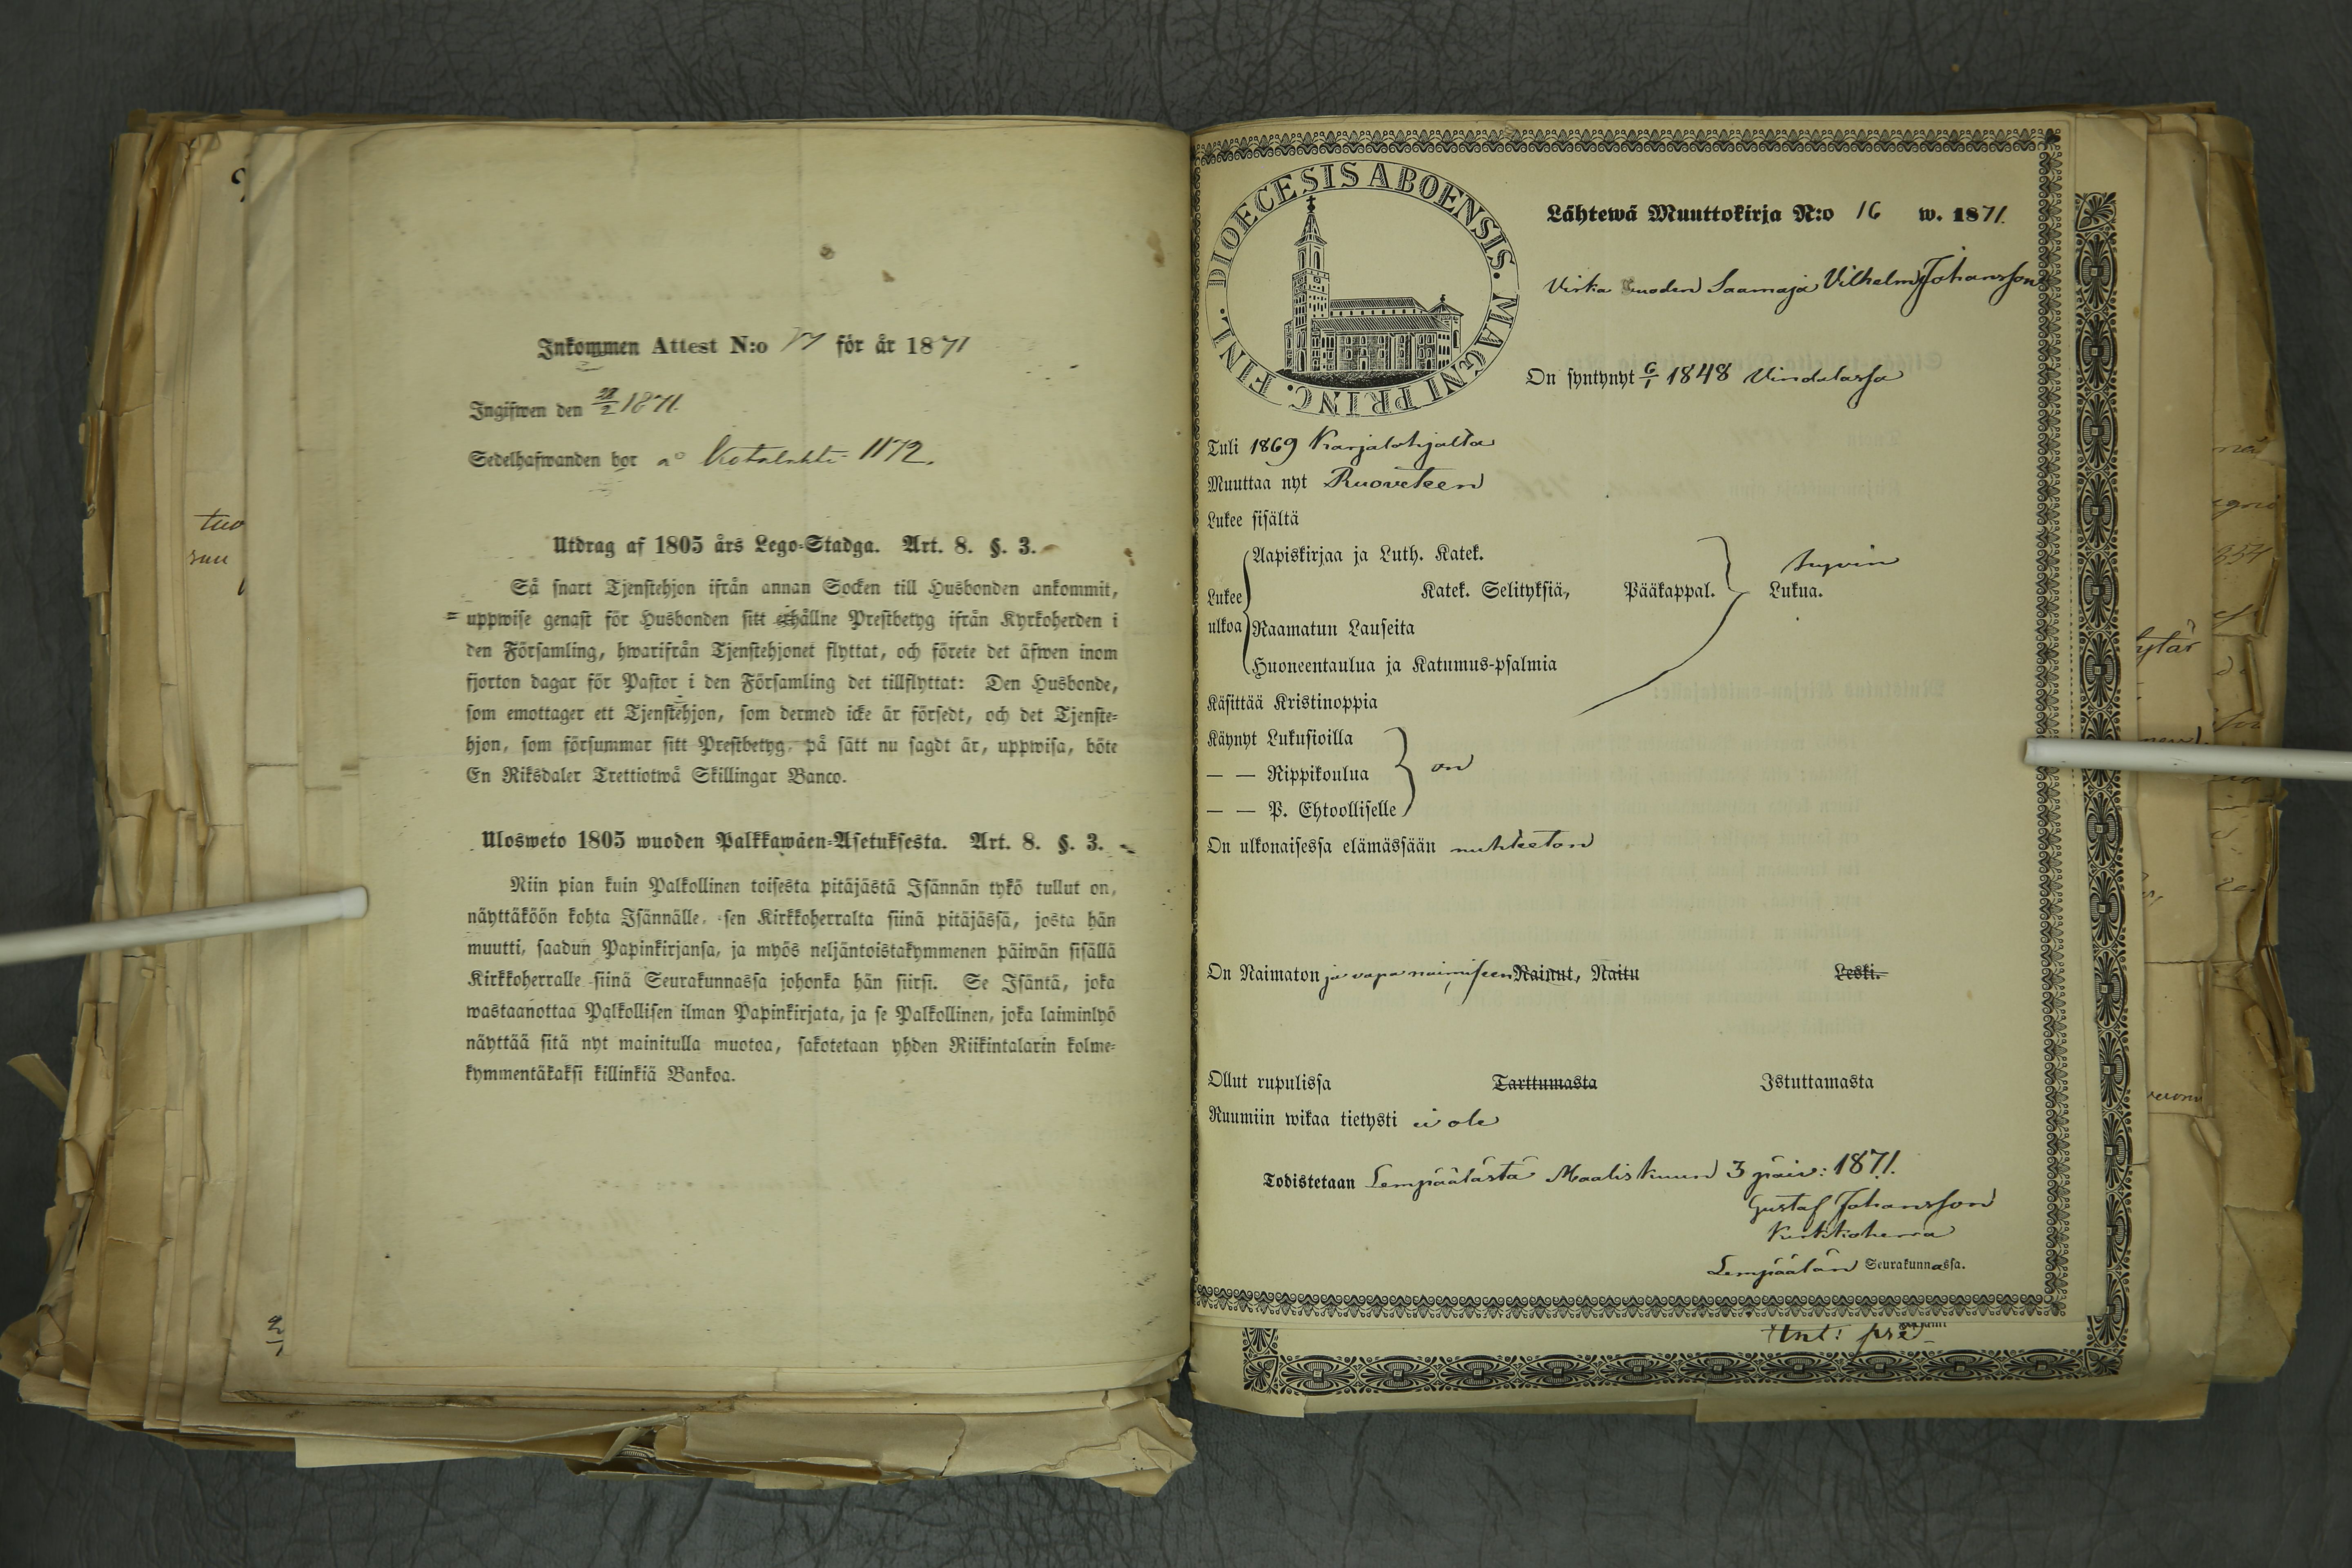 Inkommen Attest N:o 17 för år 1871
Ingifwen den 28/2 1871.
Sedelhafwanden bor å Kotalahti 1172.
Utdrag af 1805 års Lego-Stadga. Art. 8. §. 3.
Så snart Tjenstehjon ifrån annan Socken till Husbonden ankommit,
uppwise genast för Husbonden sitt erhållne Prestbetyg ifrån Kyrkoherden i
den Församling, hwarifrån Tjenstehjonet flyttat, och förete det äfwen inom
fjorton dagar för Pastor i den Församling det tillflyttat: Den Husbonde,
som emottager ett Tjenstehjon, som dermed icke är försedt, och det Tjenste-
hjon, som försummar sitt Prestbetyg, på sätt nu sagdt är, uppwisa, böte
En Riksdaler Trettiotwå Skillingar Banco.
Ulosweto 1805 wuoden Palkkawäen-Asetuksesta. Art. 8. §. 3.
Niin pian kuin Palkollinen toisesta pitäjästä Isännän tykö tullut on,
näyttäköön kohta Isännälle, sen Kirkkoherralta siinä pitäjässä, josta hän
muutti, saadun Papinkirjansa, ja myös neljäntoistakymmenen päiwän sisällä
Kirkkoherralle siinä Seurakunnassa johonka hän siirsi. Se Isäntä, joka
wastaanottaa Palkollisen ilman Papinkirjata, ja se Palkollinen, joka laiminlyö
näyttää sitä nyt mainitulla muotoa, sakotetaan yhden Riikintalarin kolme-
kymmentäkaksi killinkiä Bankoa.
DIOECESIS ABOENSIS. MAGNI PRINC. FINL.
Lähtewä Muuttokirja N:o 16 w. 1871.
Virka vuoden Saamaja Vilhelm Johansson
On syntynyt 6/1 1848 Vindalassa
Tuli 1869 Karjalohjalta
Muuttaa nyt Ruoveteen
Lukee sisältä
Aapiskirjaa ja Luth. Katek.
Lukee ulkoa
Katek. Selityksiä, Pääkappal. hyvin Lukua.
Raamatun Lauseita
Huoneentaulua ja Katumus-psalmia
Käsittää Kristinoppia
Käynyt Lukusioilla
— — Rippikoulua on
— — P. Ehtoolliselle
On ulkonaisessa elämässään nuhteeton
On Naimaton ja vapa naimiseen Nainut, Naitu Leski.
Ollut rupulissa Tarttumasta Istuttamasta
Ruumiin wikaa tietysti ei ole
Todistetaan Lempäälästä Maaliskuun 3 päiv: 1871.
Gustaf Johansson
Kirkkoherra
Lempäälän Seurakunnassa.